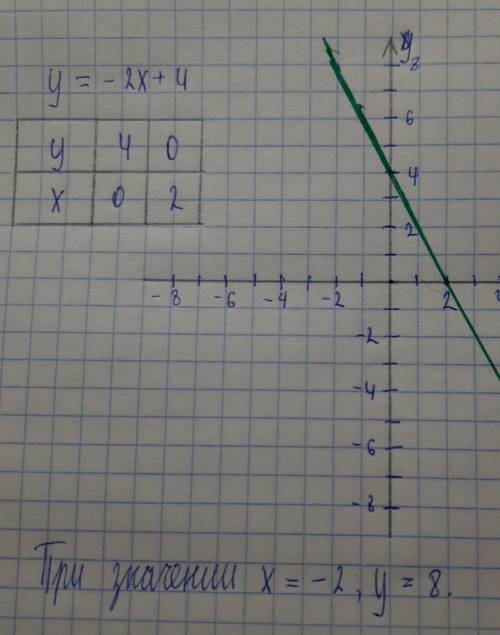 y = -2x + 4
y 4 0
x 0 2
y
8
6
4
2
-8 -6 -4 -2 2
-2
-4
-6
-8
При значении x = -2, y = 8.